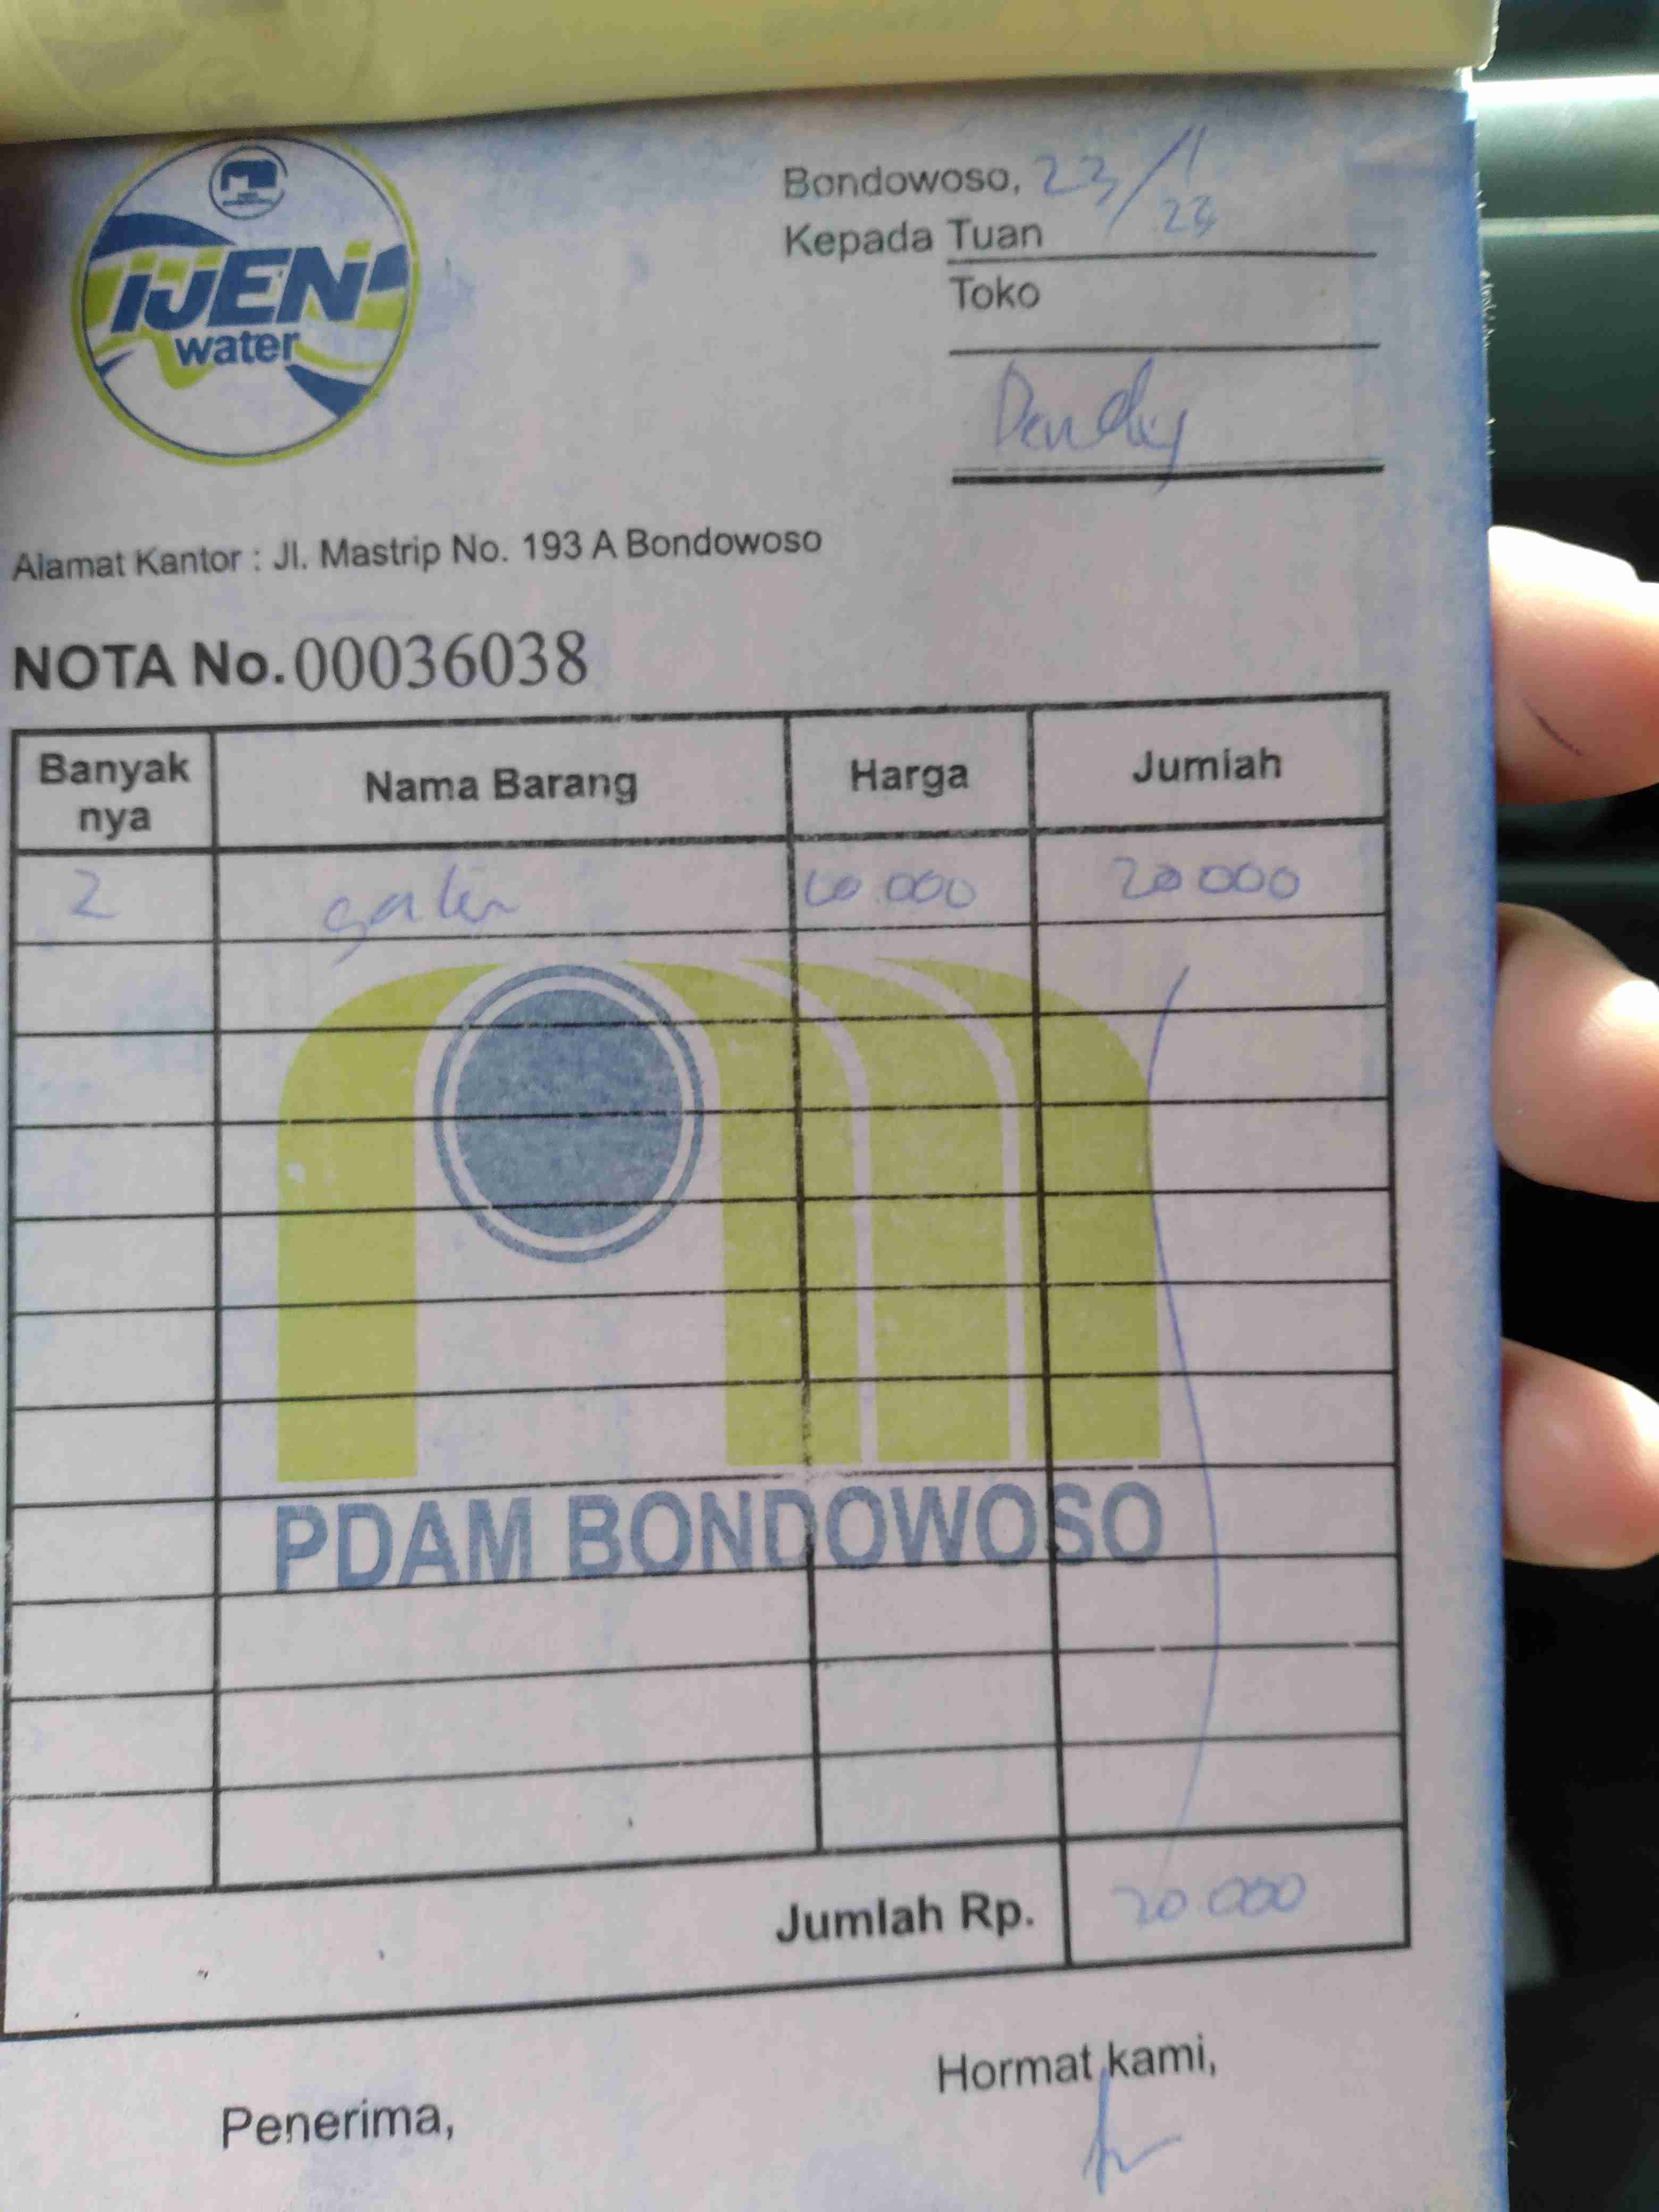 IJEN
water
Bondowoso, 23/1
Kepada Tuan
Toko
Dendy
Alamat Kantor : Jl. Mastrip No. 193 A Bondowoso
NOTA No. 00036038
Banyak nya Nama Barang Harga Jumlah
2 galon 10.000 20 000
PDAM BONDOWOSO
Jumlah Rp. 20 000
Hormat kami,
Penerima,